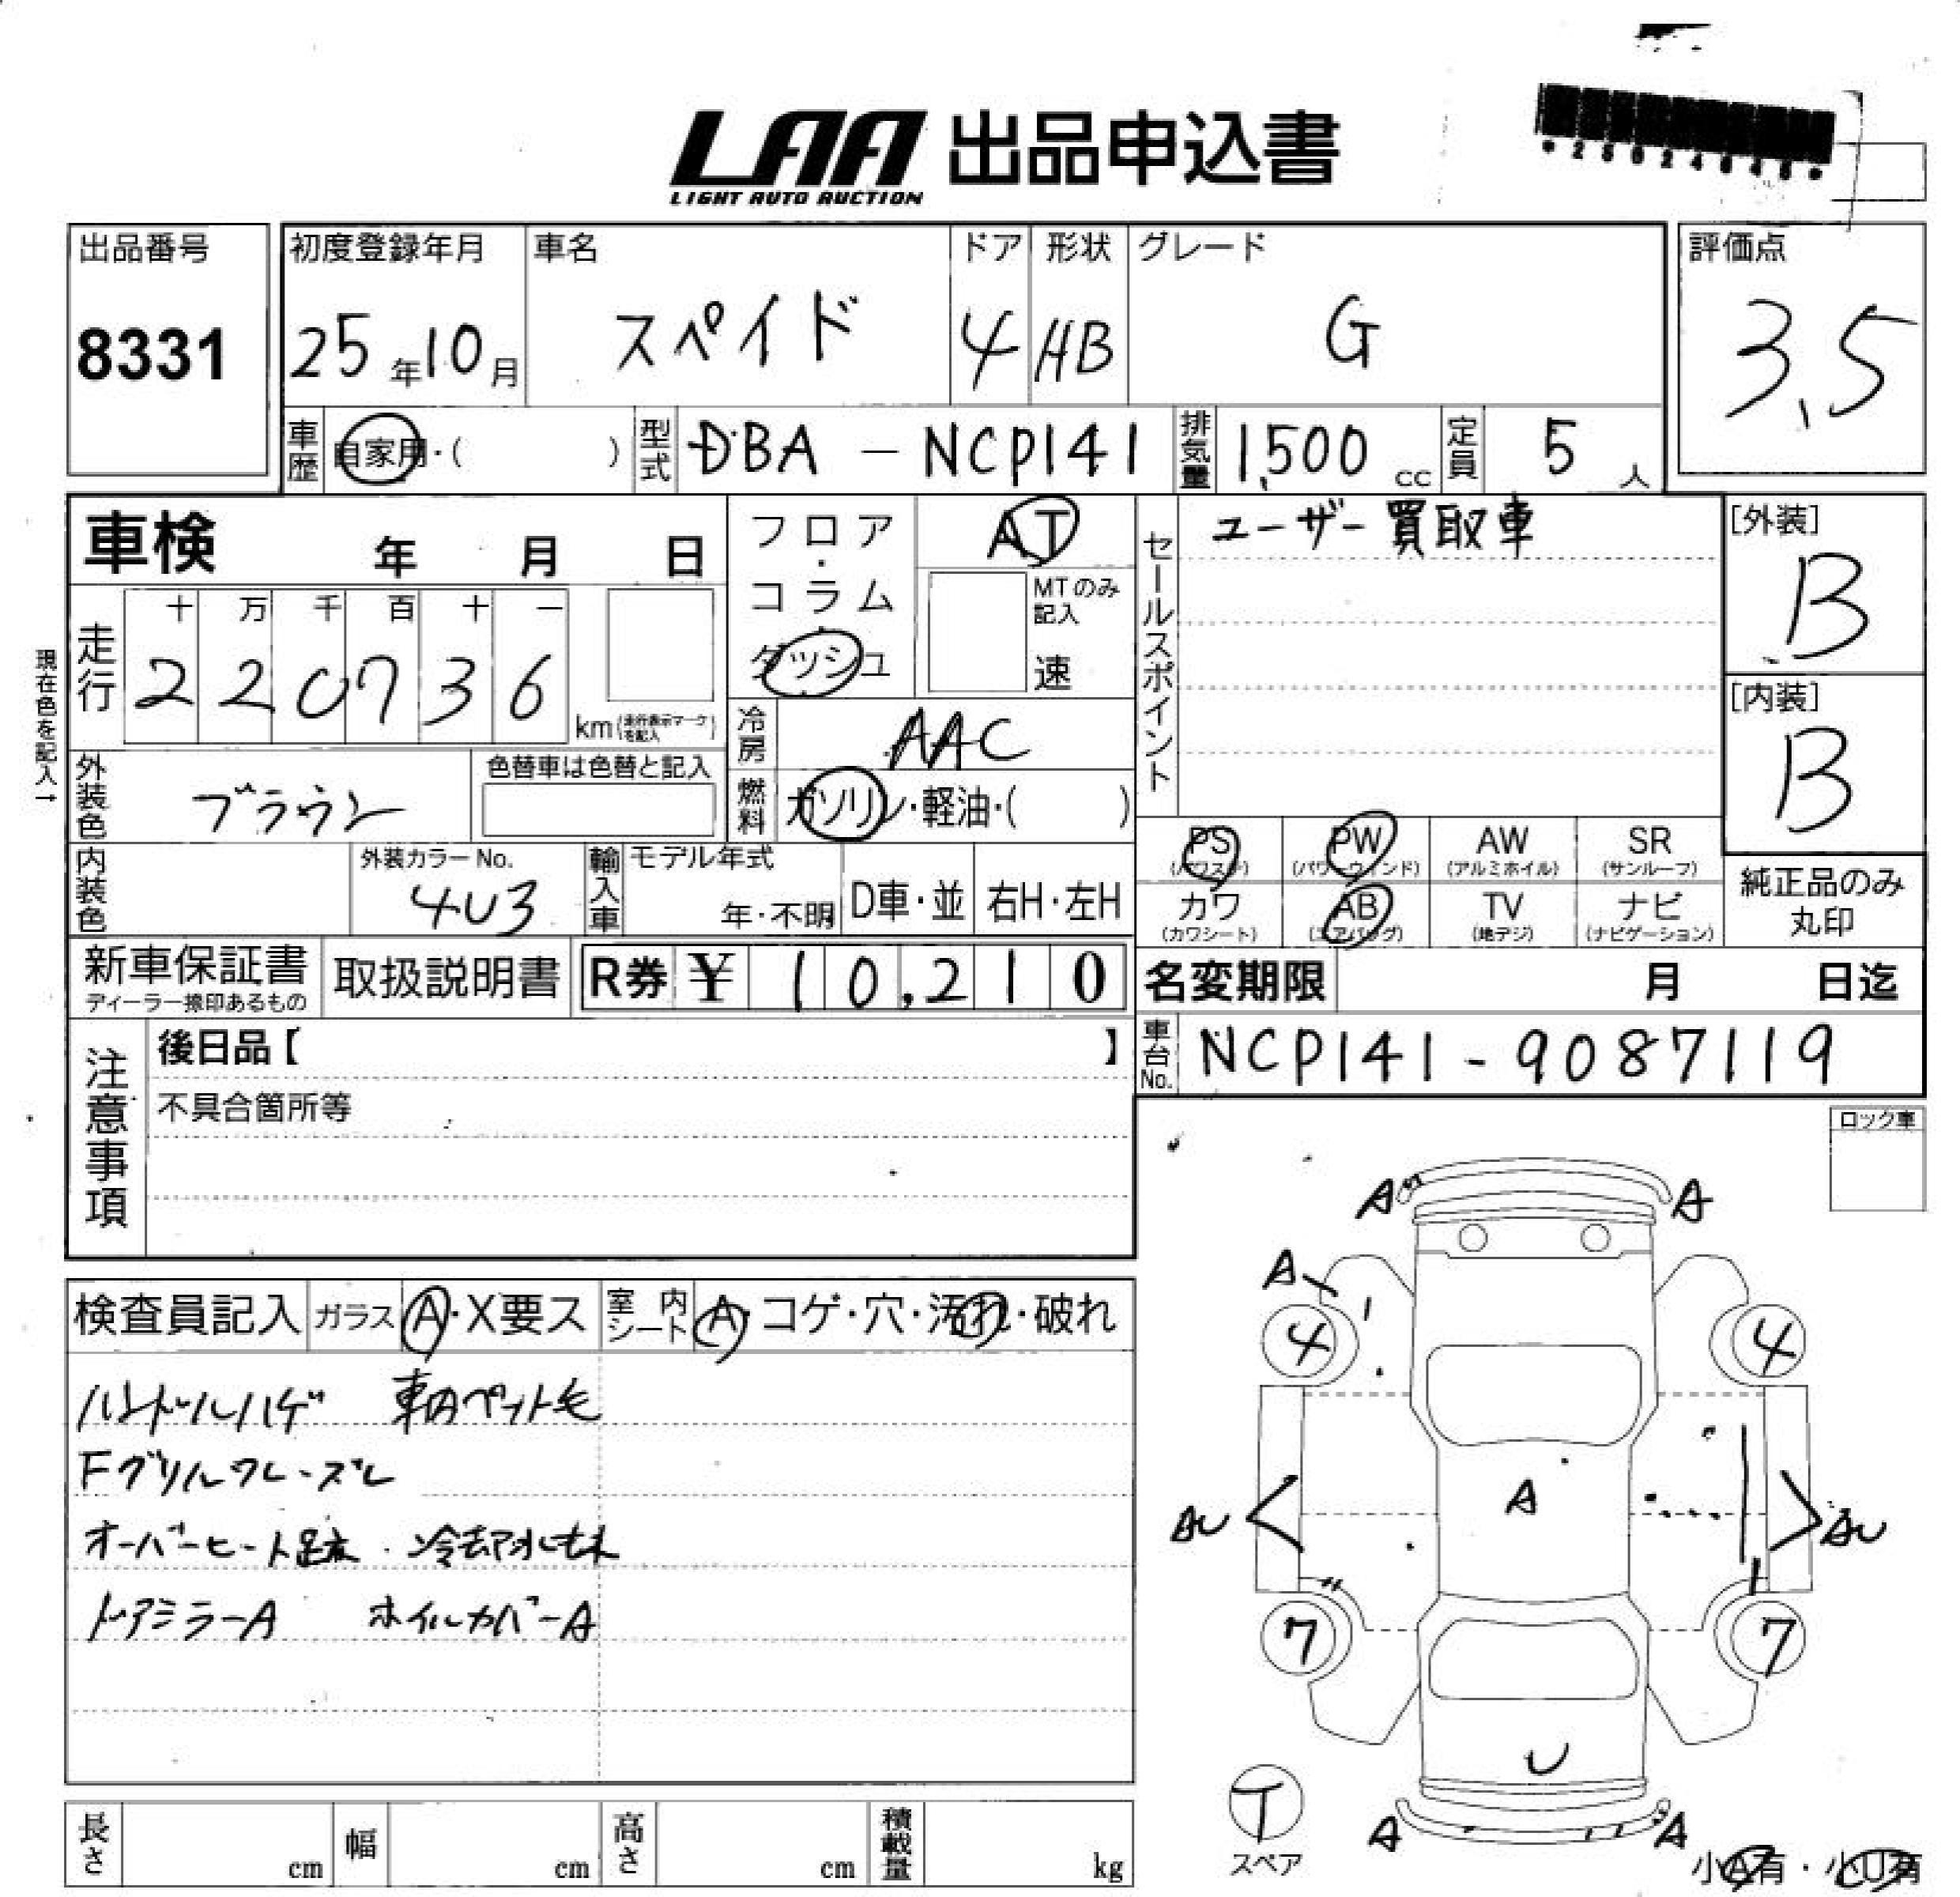 LAA 出品申込書
LIGHT AUTO AUCTION
出品番号 8331
初度登録年月 25年10月
車名 スペイド
ドア 4
形状 HB
グレード G
評価点 3.5
車歴 自家用・( )
型式 DBA-NCP141
排気量 1,500 cc
定員 5人
車検 年 月 日
フロア・コラム・ダッシュ
AT
MTのみ記入 速
セールスポイント ユーザー買取車
[外装] B
[内装] B
現在色を記入→
走行 十 万 千 百 十 一
220736 km(走行表示マークを記入)
冷房 AAC
燃料 ガソリン・軽油・( )
外装色 ブラウン
色替車は色替と記入
内装色
外装カラーNo. 4U3
輸入車 モデル年式 年・不明 D車・並 右H・左H
PS (パワステ) PW (パワーウィンド) AW (アルミホイル) SR (サンルーフ)
カワ (カワシート) AB (エアバッグ) TV (地デジ) ナビ (ナビゲーション)
純正品のみ丸印
新車保証書 ディーラー捺印あるもの
取扱説明書
R券 ¥ 10,210
名変期限 月 日迄
車台No. NCP141-9087119
注意事項
後日品【 】
不具合箇所等
ロック車
検査員記入 ガラス A・X要ス 室内シート A・コゲ・穴・汚れ・破れ
ハンドルハゲ 車内ペット毛
Fグリルワレ・ズレ
オーバーヒート 冷却水
ドアミラーA ホイルカバーA
A A
A
4 4
AU A AU
7 7
U
A A
T
スペア
小A有・小U有
長さ cm 幅 cm 高さ cm 積載量 kg